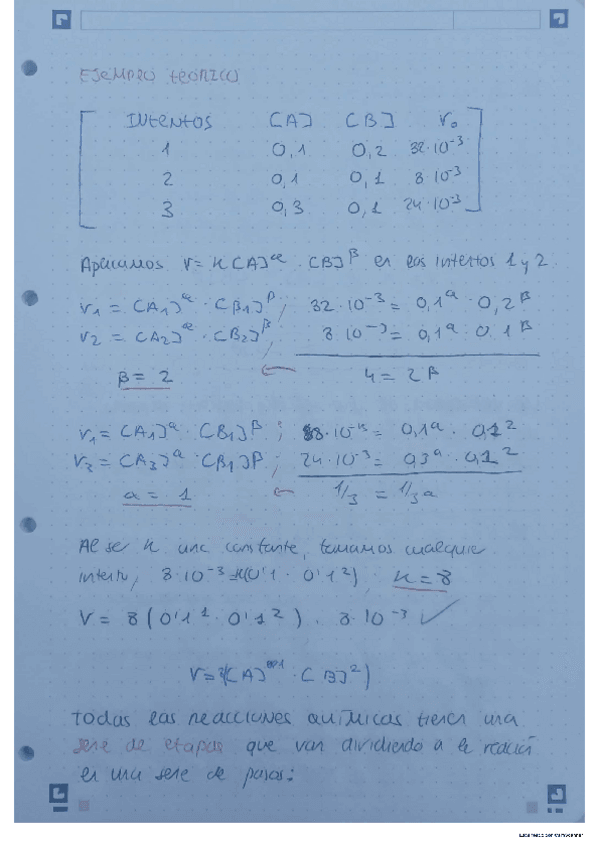 EJEMPLO TEORICO
INTENTOS [A] [B] V₀
1 0,1 0,2 32·10⁻³
2 0,1 0,1 8·10⁻³
3 0,3 0,1 24·10⁻³
Aplicamos V=K[A]ᵅ·[B]ᵝ en los intentos 1 y 2.
V₁ = [A₁]ᵅ·[B₁]ᵝ; 32·10⁻³ = 0,1ᵅ·0,2ᵝ
V₂ = [A₂]ᵅ·[B₂]ᵝ; 8·10⁻³ = 0,1ᵅ·0,1ᵝ
β = 2 ← 4 = 2ᵝ
V₁ = [A₁]ᵅ·[B₁]ᵝ; 8·10⁻³ = 0,1ᵅ·0,1²
V₃ = [A₃]ᵅ·[B₁]ᵝ; 24·10⁻³ = 0,3ᵅ·0,1²
α = 1 ← 1/3 = 1/3ᵅ
Al ser K una constante, tomamos cualquier
intento, 8·10⁻³=K(0'1·0'1²); K=8
V = 8(0'1¹·0'1²). 8·10⁻³ ✓
V=8([A]¹·[B]²)
Todas las reacciones químicas tienen una
serie de etapas que van dividiendo a la reacción
en una serie de pasos: